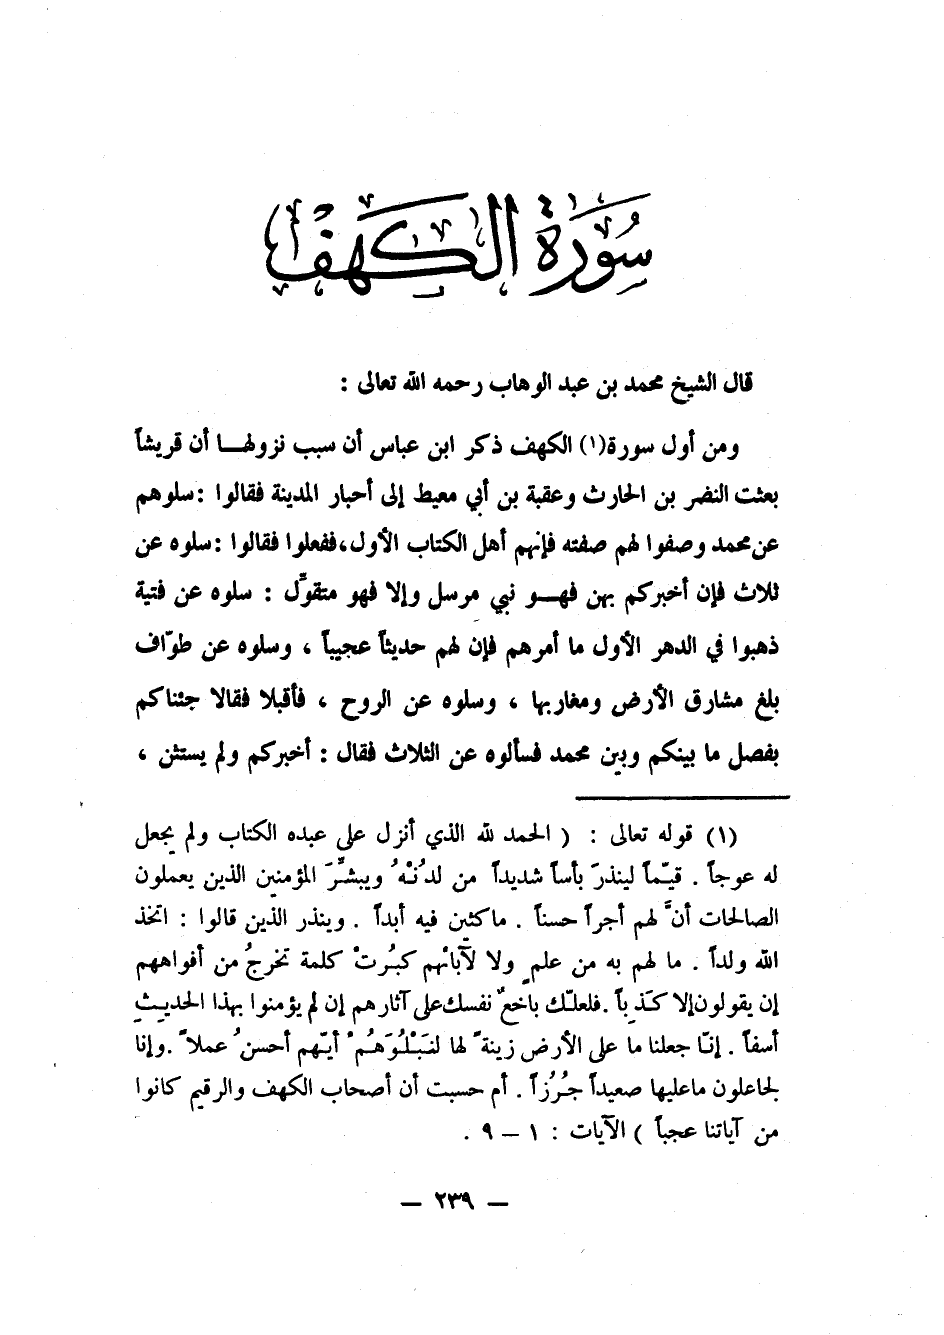 سورة الكهف
قال الشيخ محمد بن عبد الوهاب رحمه الله تعالى :
ومن أول سورة(١) الكهف ذكر ابن عباس أن سبب نزولهـا أن قريشاً
بعثت النضر بن الحارث وعقبة بن أبي معيط إلى أحبار المدينة فقالوا : سلوهم
عن محمد وصفوا لهم صفته فإنهم أهل الكتاب الأول، ففعلوا فقالوا : سلوه عن
ثلاث فإن أخبركم بهن فهـو نبي مرسل وإلا فهو متقوِّل : سلوه عن فتية
ذهبوا في الدهر الأول ما أمرهم فإن لهم حديثاً عجيباً ، وسلوه عن طوّاف
بلغ مشارق الأرض ومغاربها ، وسلوه عن الروح ، فأقبلا فقالا جئناكم
بفصل ما بينكم وبين محمد فسألوه عن الثلاث فقال : أخبركم ولم يستثن ،
(١) قوله تعالى : ( الحمد لله الذي أنزل على عبده الكتاب ولم يجعل
له عوجاً . قيّماً لينذرَ بأساً شديداً من لدُنْهُ ويبشِّرَ المؤمنين الذين يعملون
الصالحات أنَّ لهم أجراً حسناً . ماكثين فيه أبداً . وينذر الذين قالوا : اتخذ
الله ولداً . ما لهم به من علمٍ ولا لآبائهم كبُرتْ كلمة تخرجُ من أفواههم
إن يقولون إلا كَذِباً . فلعلّك باخعٌ نفسك على آثارهم إن لم يؤمنوا بهذا الحديثِ
أسفاً . إنّا جعلنا ما على الأرض زينةً لها لنَبْلُوَهُمْ أيّهم أحسنُ عملاً . وإنا
لجاعلون ماعليها صعيداً جُرُزاً . أم حسبت أن أصحاب الكهف والرقيم كانوا
من آياتنا عجباً ) الآيات : ١ – ٩ .
— ٢٣٩ —